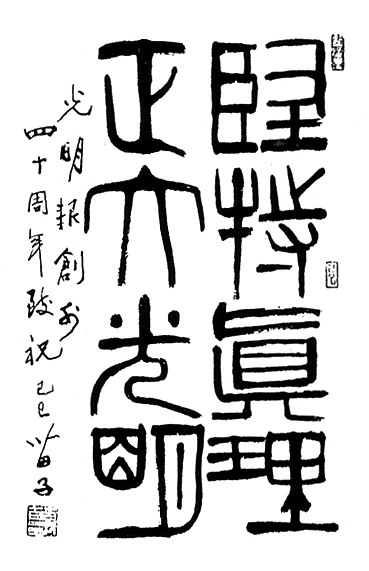 堅持眞理
正大光明
光明報創刊
四十周年致祝己巳